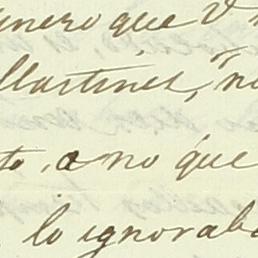 inero que V
Martinez, no
to, a no que
lo ignoraba